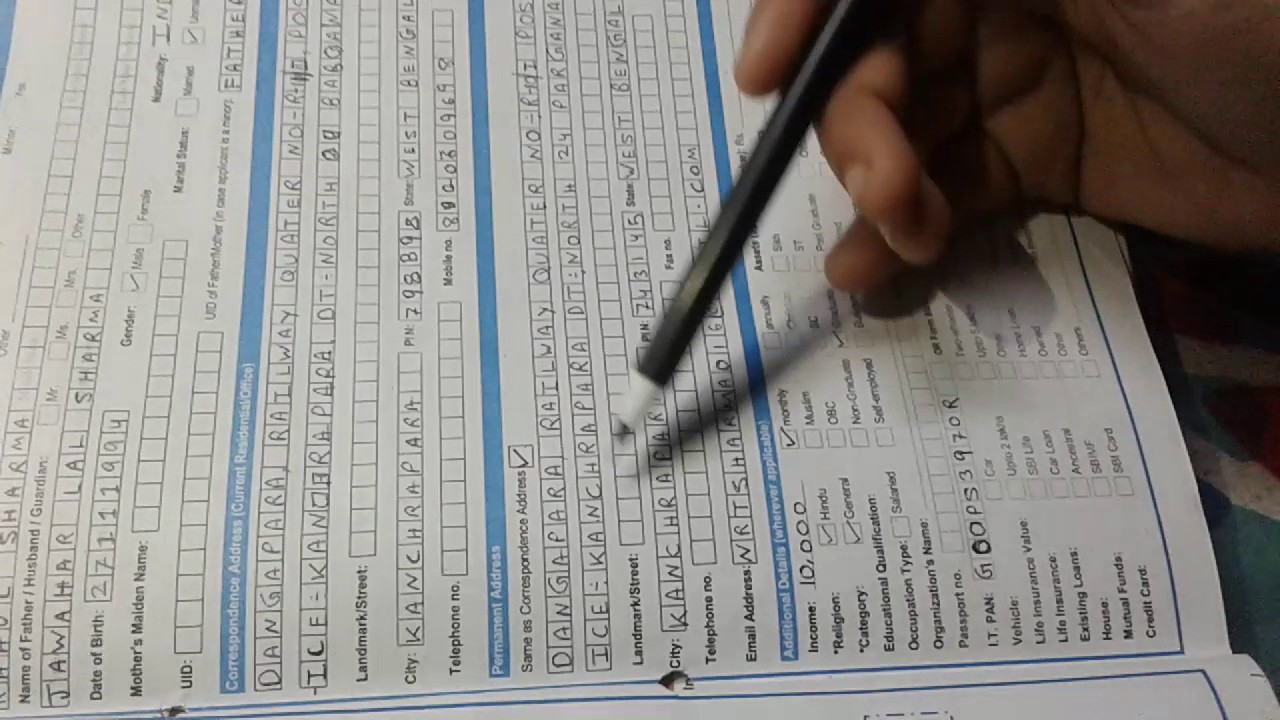 SHARMA
Name of Father / Husband / Guardian: Mr. Ms. Mrs. Other
JAWAHAR LAL SHARMA
Date of Birth: 27111994 Gender: Male Female
Mother's Maiden Name: Marital Status: Married Nationality:
UID: UID of Father/Mother (in case applicant is a minor): FATHER
Correspondence Address (Current Residential/Office)
DANGAPARA, RAILWAY QUATER NO-R-
ICE- RAPARA, DT=NORTH
Landmark/Street:
City: KANCHRAPARA PIN: State: WEST BENGAL
Telephone no. Mobile no.
Permanent Address
Same as Correspondence Address
DANGAPARA RAILWAY QUATER NO-R- POS
ICE- KANCHRAPARA DT:NORTH 24 PARGANA
Landmark/Street:
City: KANCHRAPAR PIN: 743145 State: WEST BENGAL
Telephone no. Fax no.
Email Address: .COM
Additional Details (wherever applicable)
Income: 10,000 monthly annually
*Religion: Hindu Muslim Sikh
*Category: General OBC SC ST
Educational Qualification: Non-Graduate Post Graduate
Occupation Type: Salaried Self-employed
Organization's Name:
Passport no. OR Form
I.T. PAN: GOOPS3970R
Vehicle: Car Two-wheeler
Life Insurance Value: Upto 2 lakhs
Life Insurance: SBI Life Other
Existing Loans: Car Loan Home Loan
House: Ancestral Owned
Mutual Funds: SBI MF Other
Credit Card: SBI Card Others